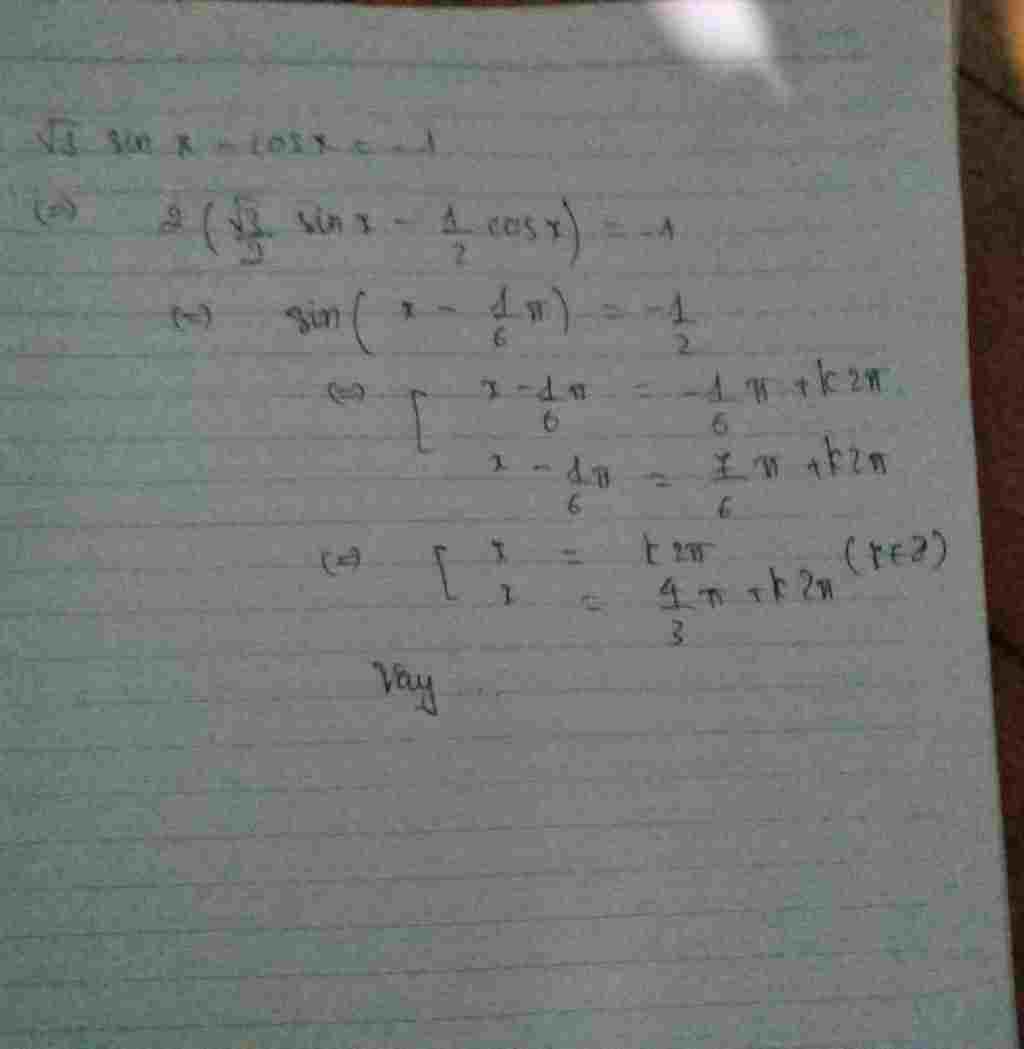 √3 sin x - cos x = -1
(=) 2(√3/2 sin x - 1/2 cos x) = -1
(=) sin(x - 1/6 π) = -1/2
(=) [ x - 1/6 π = -1/6 π + k2π
x - 1/6 π = 7/6 π + k2π
(=) [ x = k2π (k∈Z)
x = 4/3 π + k2π
Vay ...